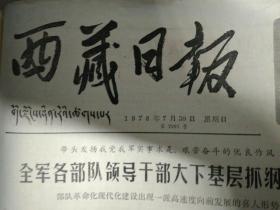 西藏日报
1978年7月30日 星期日
带头发扬我党我军实事求是、艰苦奋斗的优良作风
全军各部队领导干部大下基层抓纲
部队革命化现代化建设出现一派高速度向前发展的喜人形势